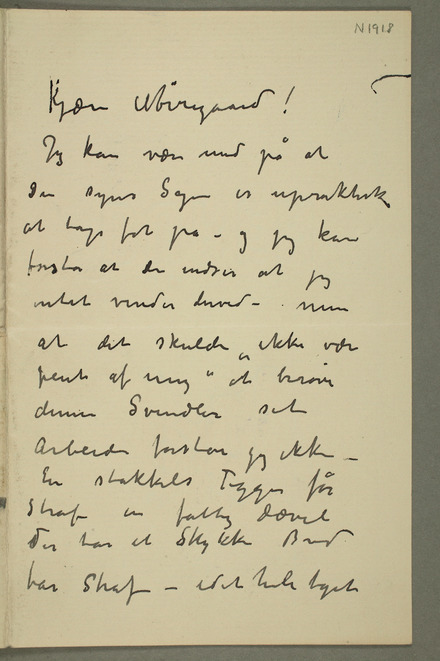 N 1918
Kjære Nørregaard!
Jeg kan være med på at
Du synes Sagen er upraktisk
at tage fat på – og jeg kan
forstå at du indser at jeg
intet vinder derved – men
at det skulde „ikke være
pent af mig“ at berøve
denne Svindler sit
Arbeide forstår jeg ikke –
En stakkels Tigger får
Straf en fattig Dævel
der tar et Stykke Brød
har Straf – i det hele taget